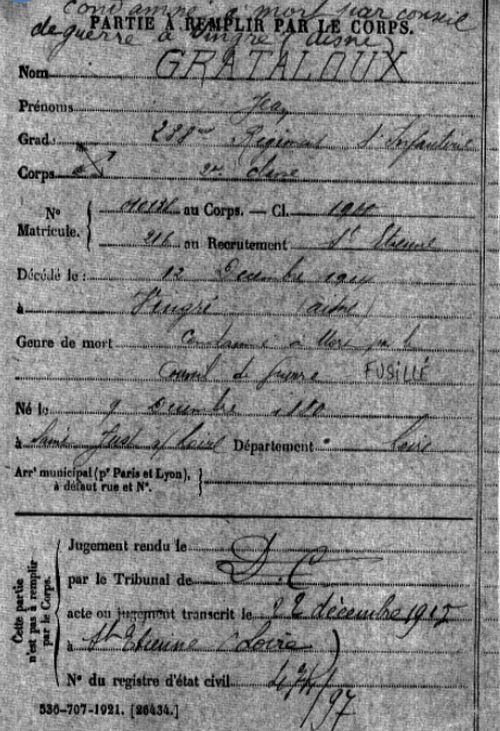 Condamné à mort par conseil
de guerre à Vingré (Aisne)
PARTIE À REMPLIR PAR LE CORPS.
Nom GRATALOUX
Prénoms Jean
Grade 238me Régiment d'Infanterie
Corps 2e classe
N° Matricule. au Corps. — Cl. 1900
216 au Recrutement St Etienne
Décédé le : 12 Décembre 1914
à Vingré (aisne)
Genre de mort Condamné à Mort par le
Conseil de guerre FUSILLÉ
Né le 9 Décembre 1880
à Saint Just s/ Loire Département Loire
Arrt municipal (pr Paris et Lyon),
à défaut rue et N°.
Cette partie
n'est pas à remplir
par le Corps.
Jugement rendu le
par le Tribunal de D. C
acte ou jugement transcrit le 22 décembre 1917
à St Etienne (Loire)
N° du registre d'état civil
/97
536-707-1921. [26434.]